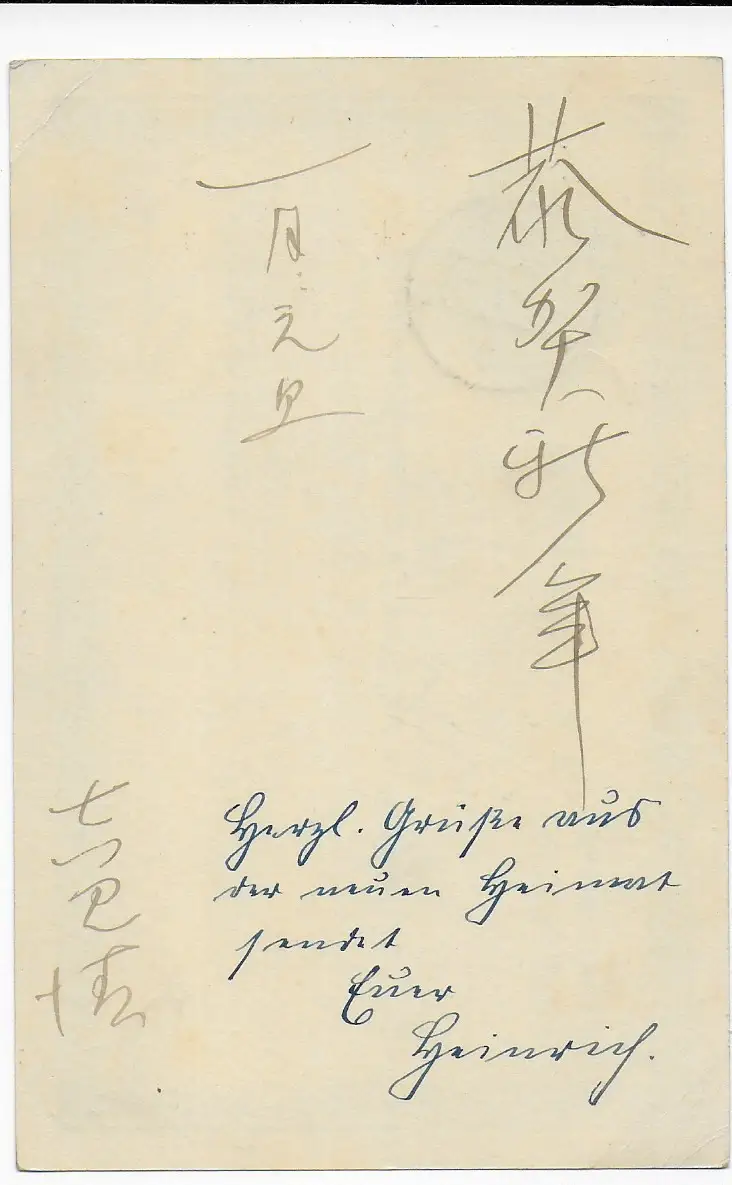 恭賀新年
一月元旦
Herzl. Grüße aus
der neuen Heimat
sendet
Euer
Heinrich.